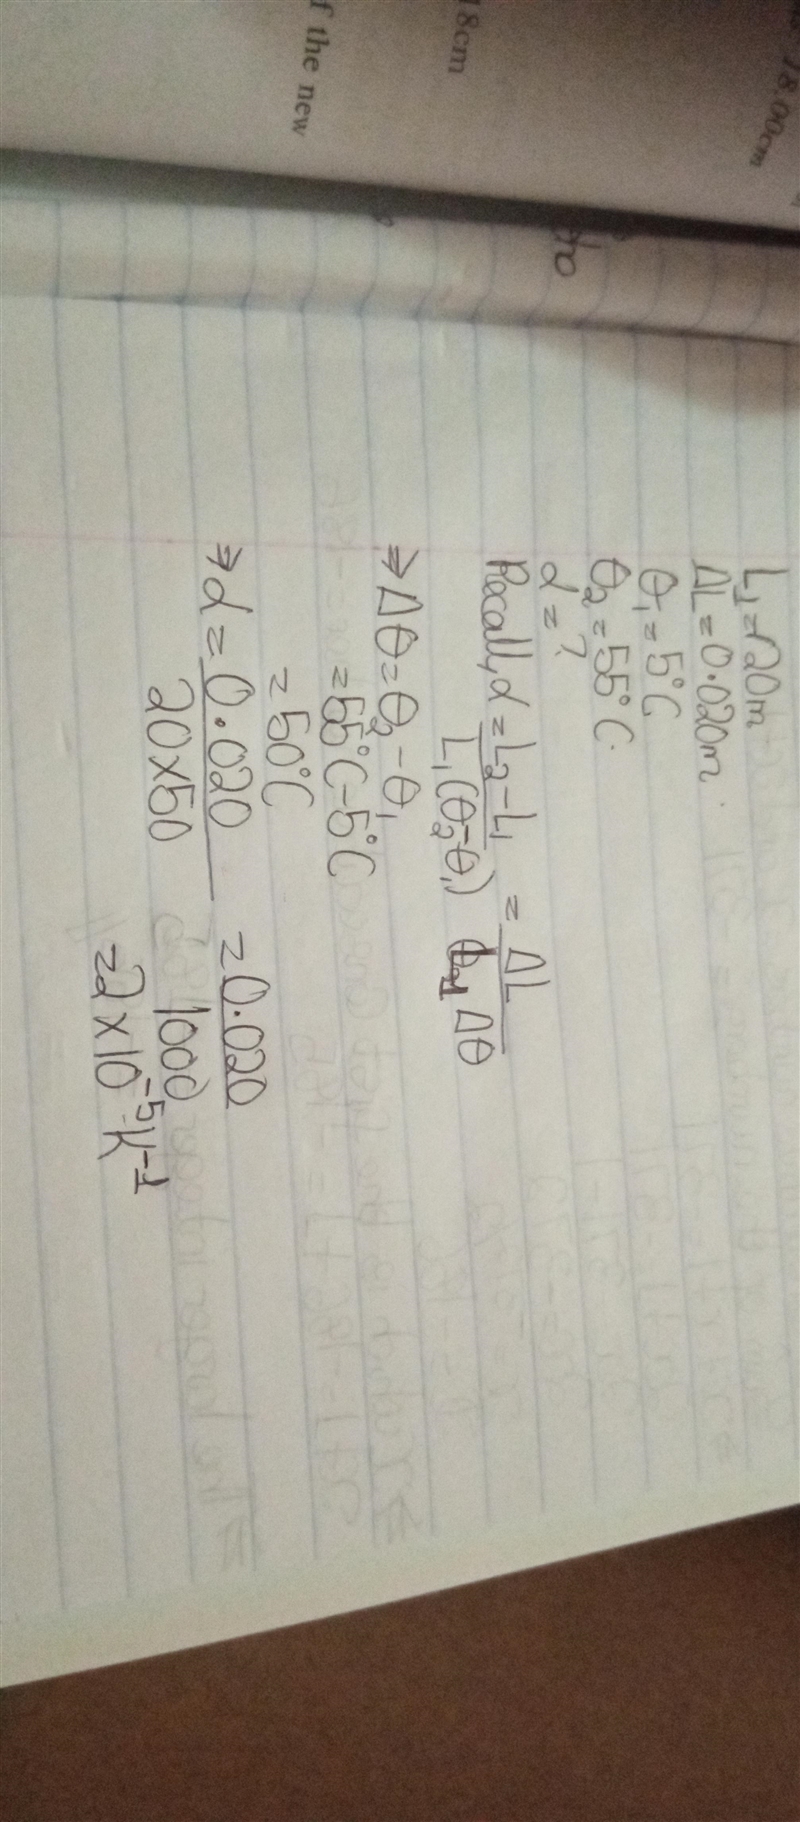 18.00cm
18cm
f the new
L₁ = 20m
ΔL = 0.020m.
θ₁ = 5°C
θ₂ = 55°C.
α = ?
Recall, α = L₂ - L₁ / L₁(θ₂-θ₁) = ΔL / L₁ Δθ
⇒ Δθ = θ₂ - θ₁
= 55°C - 5°C
= 50°C
⇒ α = 0.020 / 20 × 50 = 0.020 / 1000
= 2 × 10⁻⁵ K⁻¹